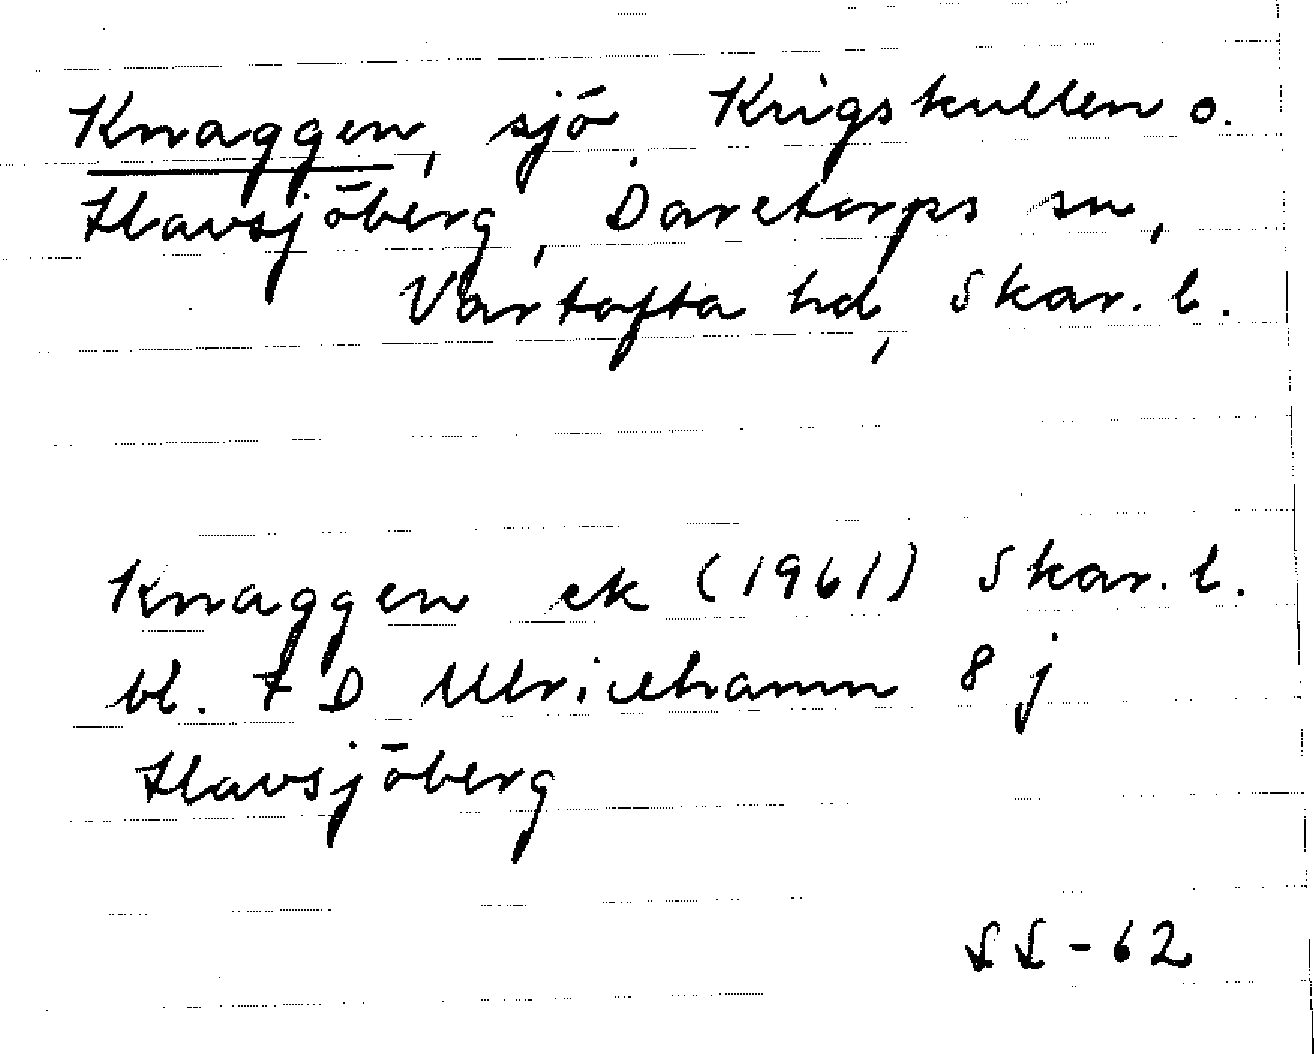 Knaggen, sjö. Krigskullen o.
Havsjöberg, Daretorps sn,
Vartofta hd, Skar. l.
Knaggen ek (1961) Skar. l.
bl. 7 D Ulricehamn 8 j
Havsjöberg
SS-62